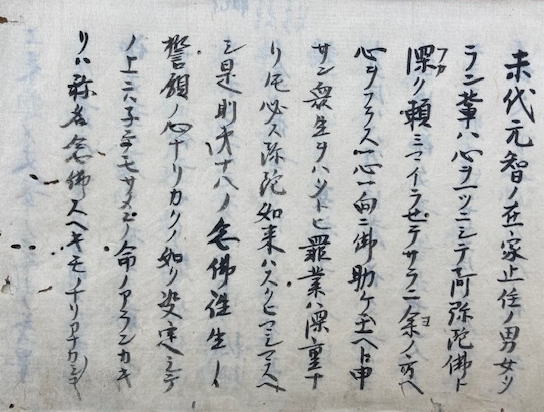 末代元智ノ在家止住ノ男女タ
ラン輩ハ心ヲ一ツニシテ阿弥陀佛ト
深ク頼ミマイラセテサラニ余ノ方ヘ
心ヲフラス一心一向ニ佛助ケ玉ヘト申
サン衆生ヲハタトヒ罪業ハ深重ナ
リ𪜈必ス弥陀如来ハスクヒマシマスヘ
シ是則第十八ノ念佛往生ノ
誓願ノ心ナリカクノ如ク決定シテ
ノ上ニハ子テモサメテモ命ノアランカキ
リハ称名念佛スヘキモノナリアナカシコ